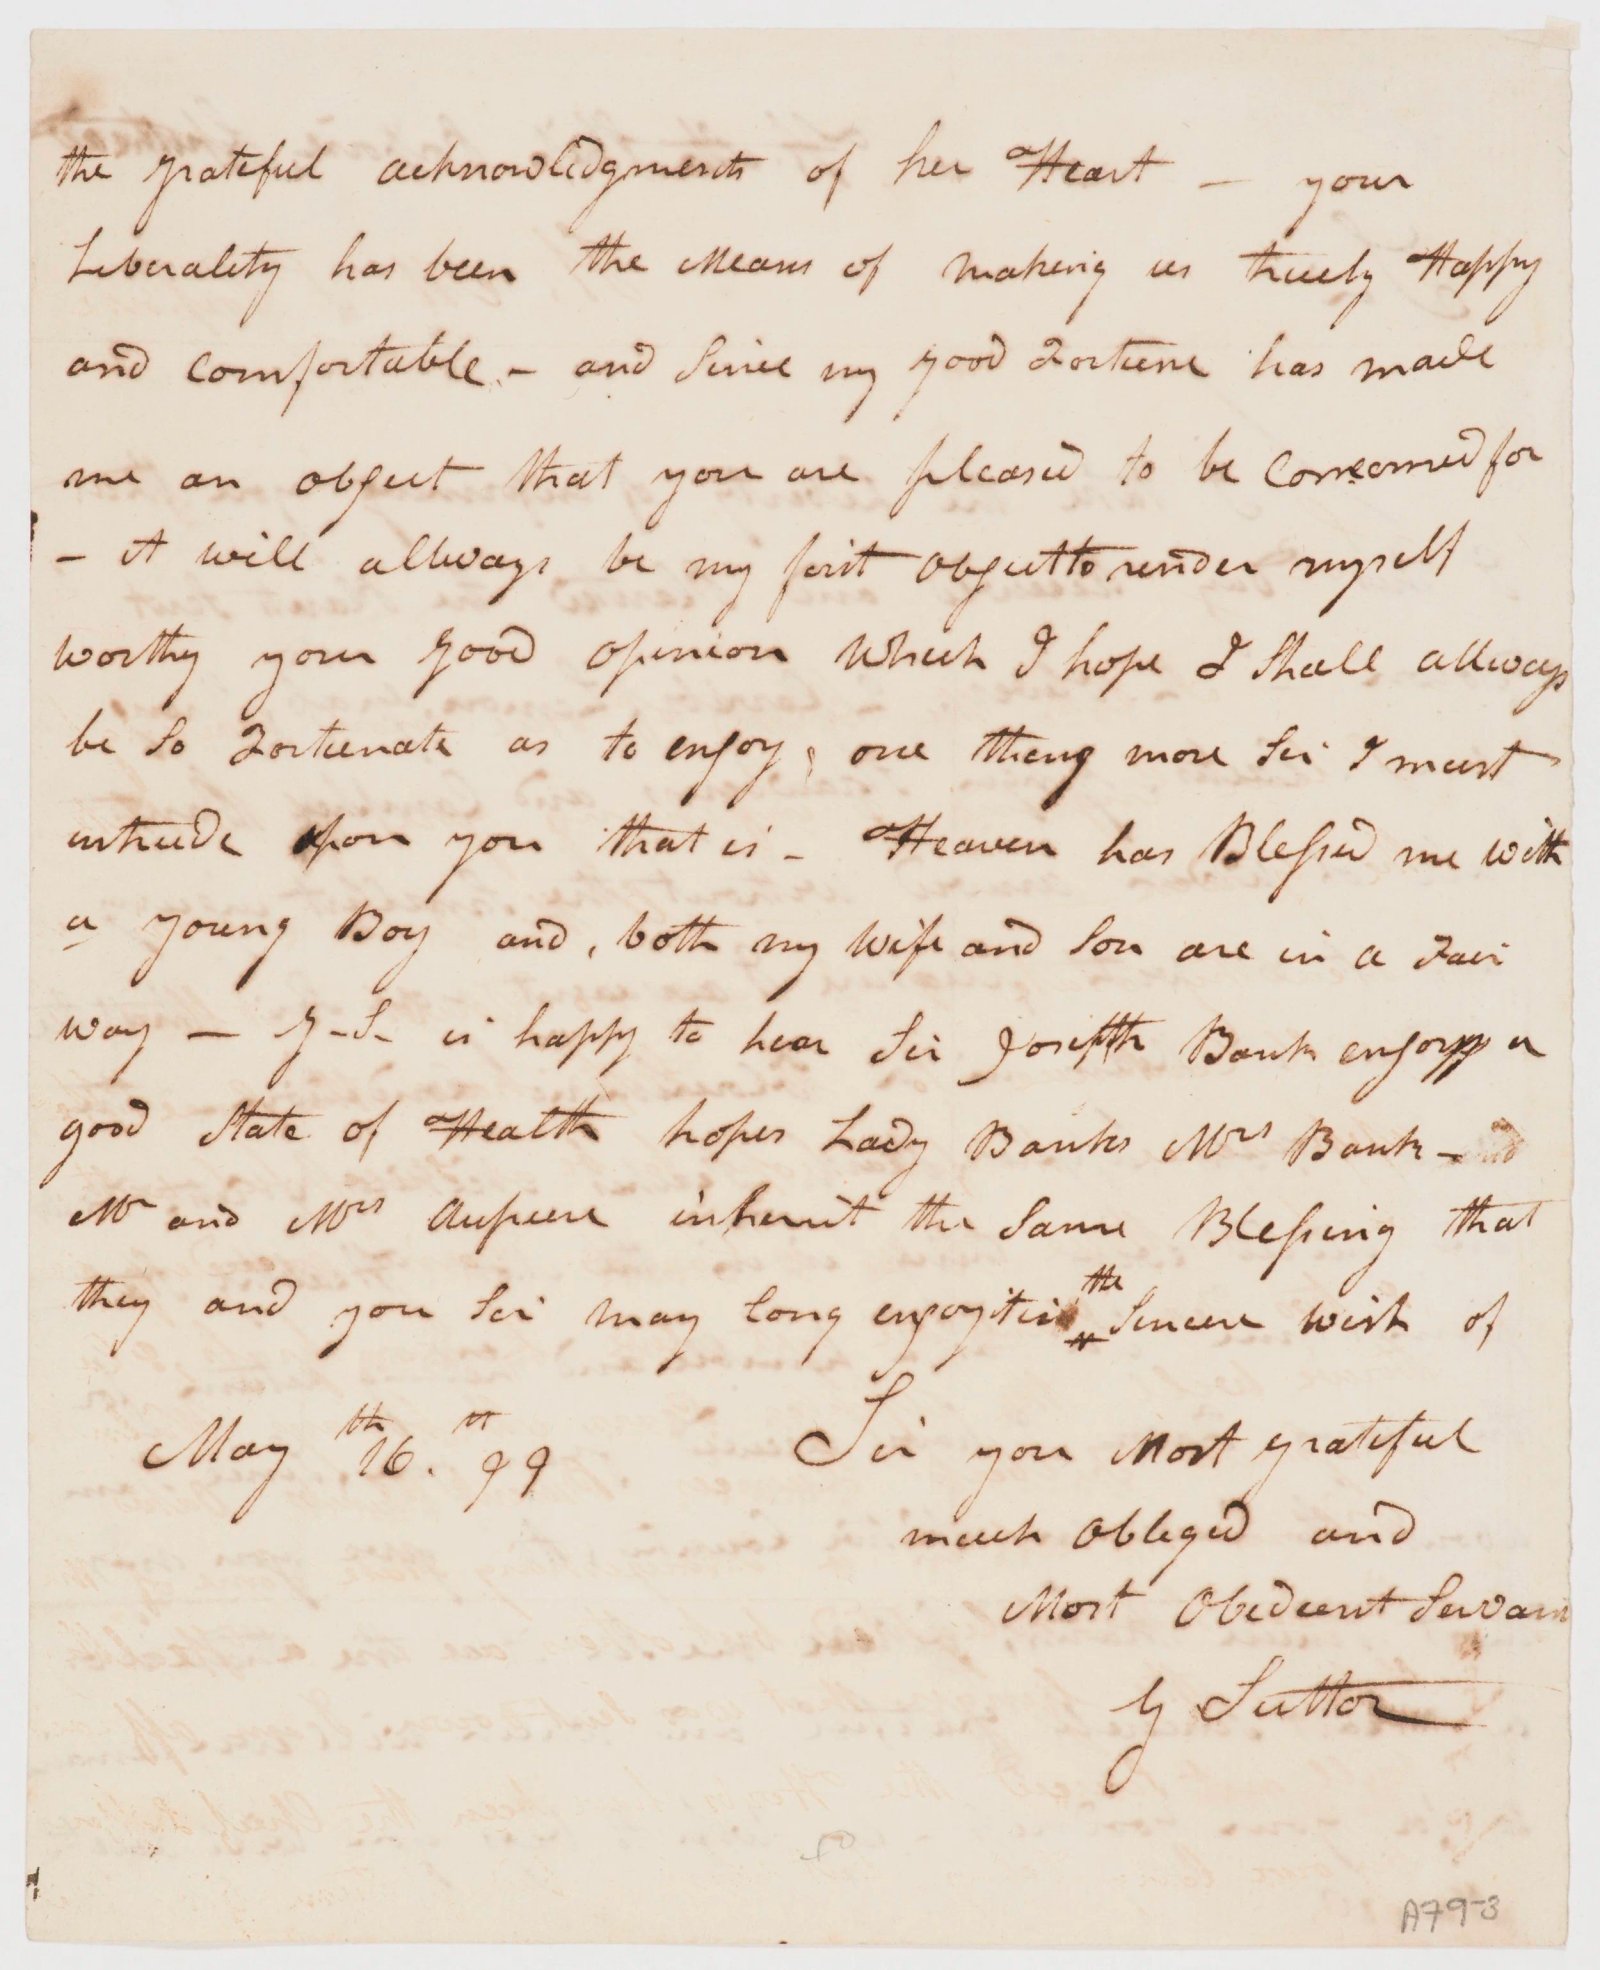 the grateful acknowlidgments of her Heart – your
Liberality has been the Means of making us truely Happy
and comfortable – and Since my good Fortune has made
me an object that you are pleased to be Concorned for
– it will allways be my first object to render myself
worthy your good opinion which I hope I Shall allways
be So Fortunate as to enjoy, one thing more Sir I must
intrude upon you that is – Heaven has Blessed me with
a young Boy and, both my wife and Son are in a Fair
way – G–S– is happy to hear Sir Joseph Bank enjoys a
good State of Health hopes Lady Banks Mrs Bank – and
Mr and Mrs Aupere inherit the Same Blessing that
they and you Sir may long enjoy it is the Sincere wish of
Sir your Most grateful
May 16th. 99
much Obleged and
Most Obedient Servan
G Suttor
A79-3